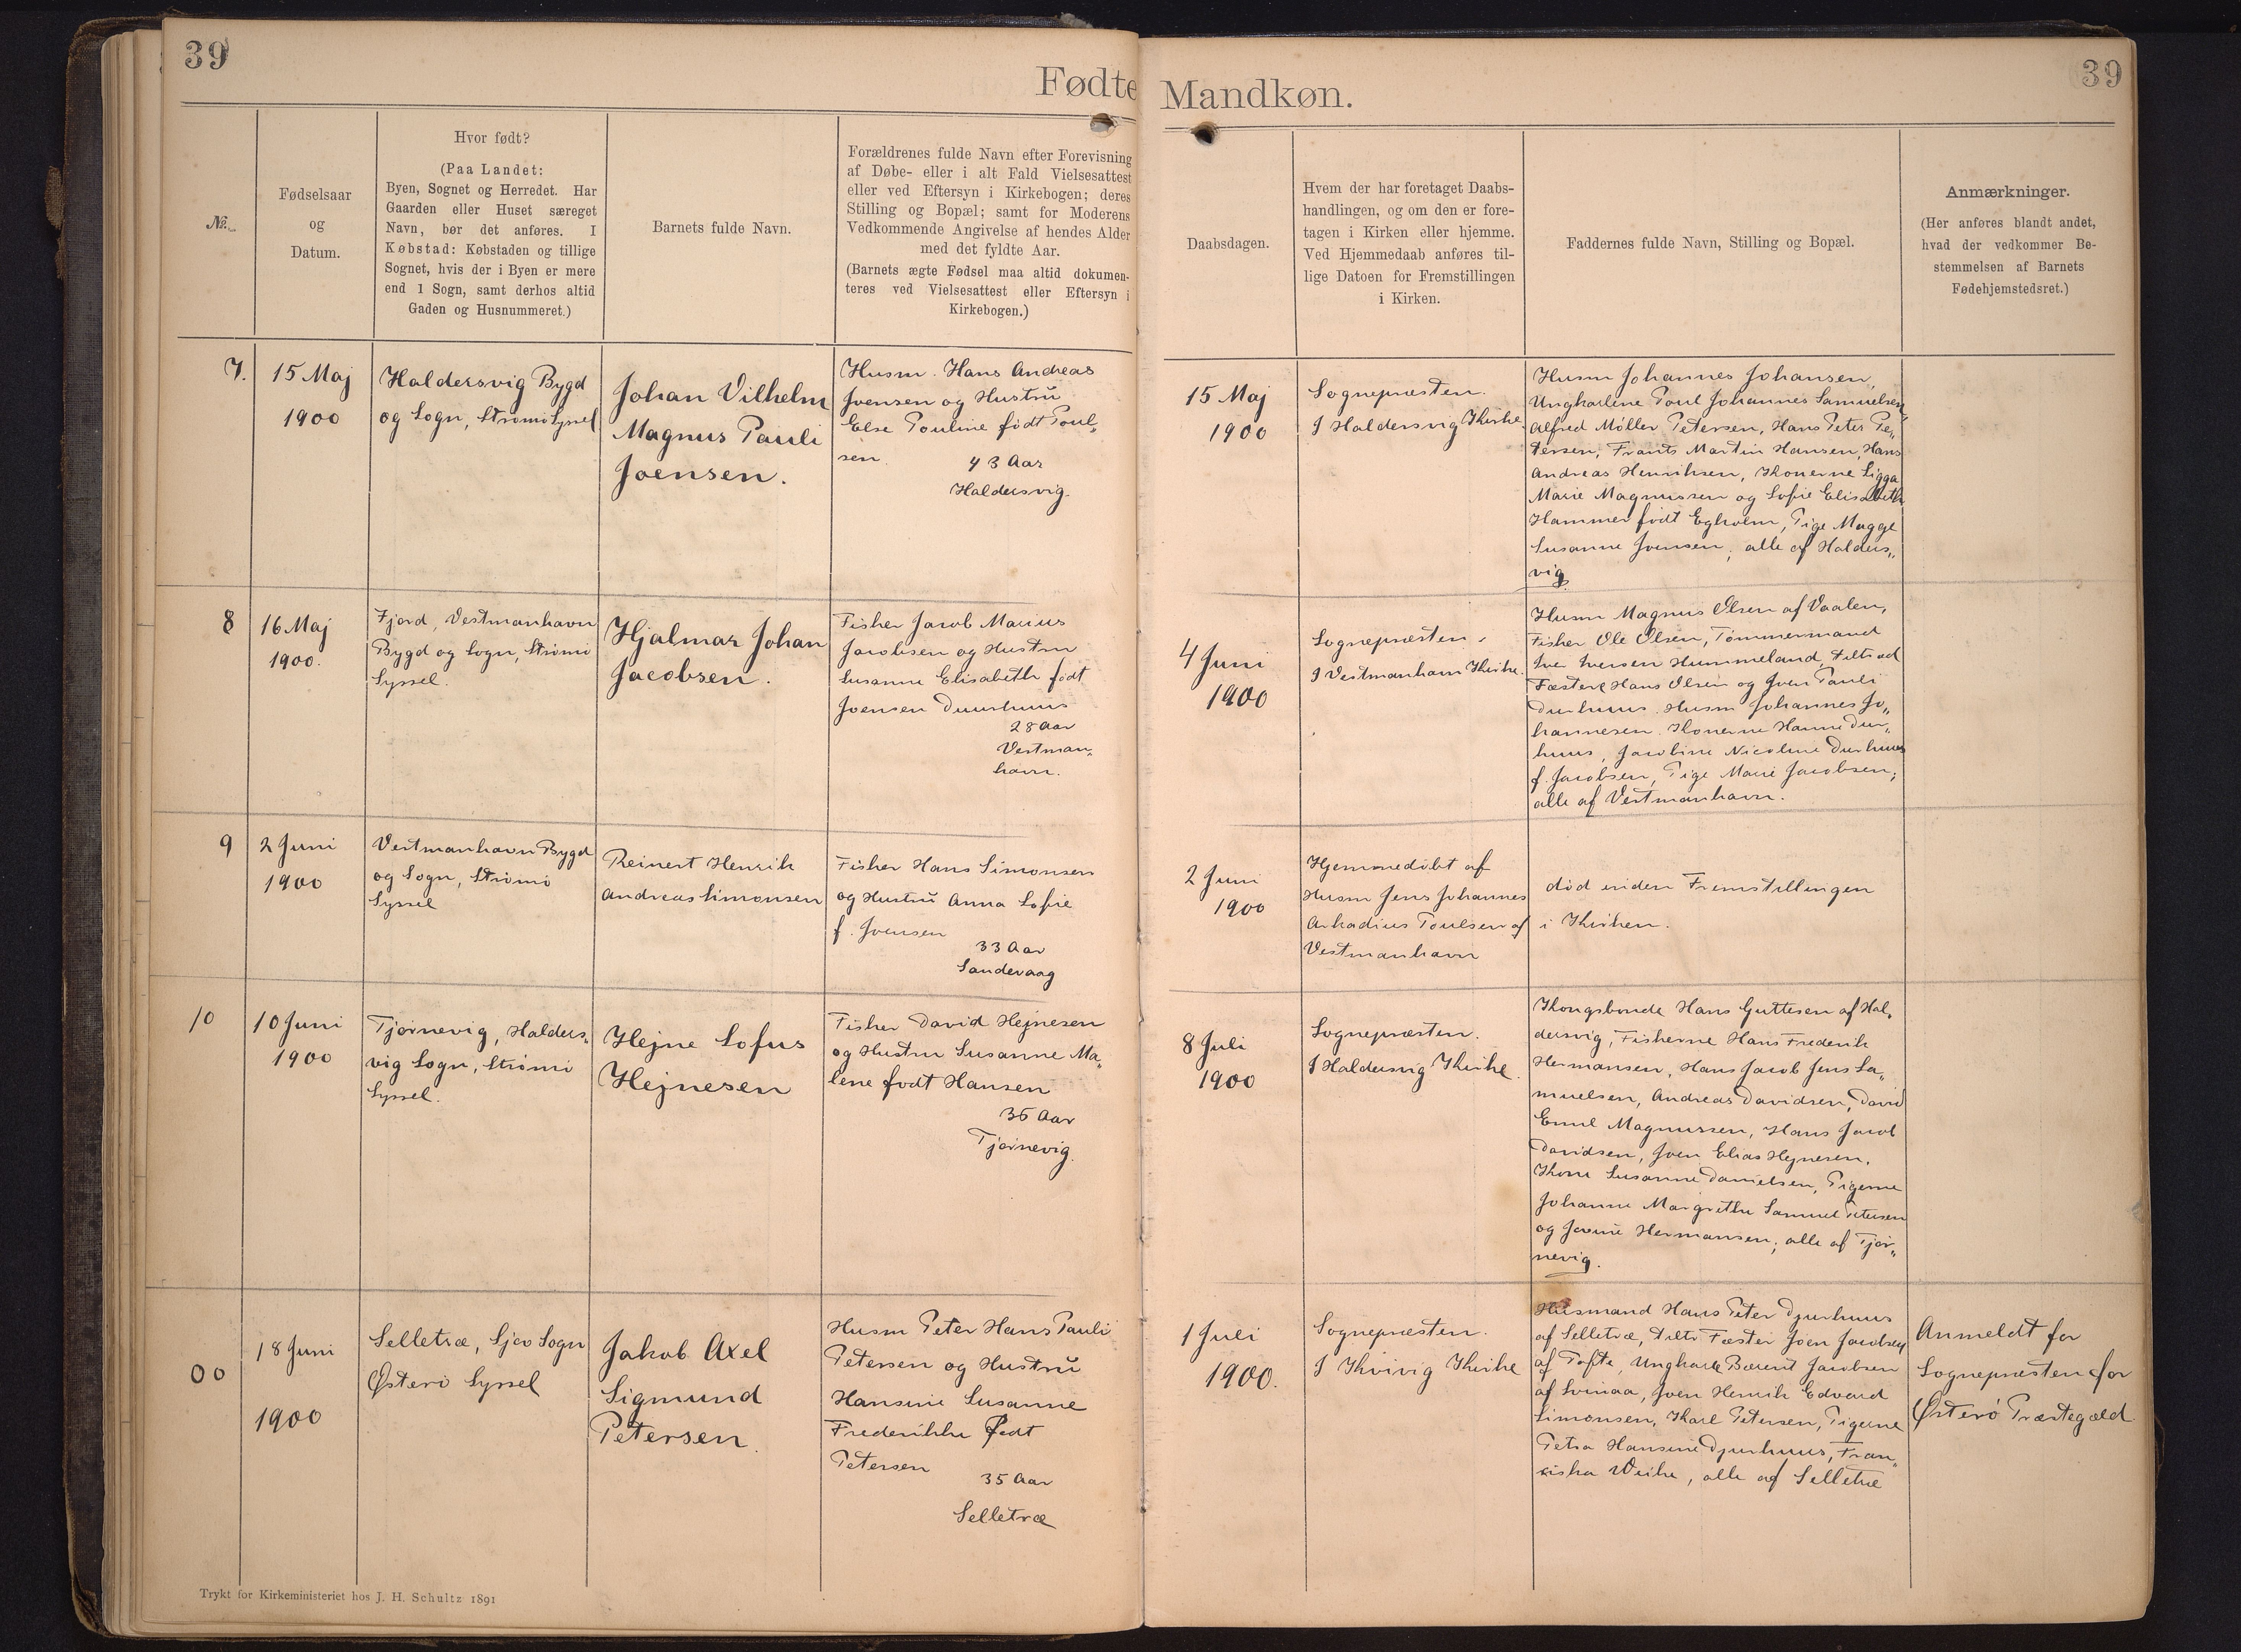 39
39
Fødte Mandkøn.
No.
Fødselsaar
og
Datum.
Hvor født?
(Paa Landet:
Byen, Sognet og Herredet. Har
Gaarden eller Huset særeget
Navn, bør det anføres. I
Købstad: Købstaden og tillige
Sognet, hvis der i Byen er mere
end 1 Sogn, samt derhos altid
Gaden og Husnummeret.)
Barnets fulde Navn.
Forældrenes fulde Navn efter Forevisning
af Døbe- eller i alt Fald Vielsesattest
eller ved Eftersyn i Kirkebogen; deres
Stilling og Bopæl; samt for Moderens
Vedkommende Angivelse af hendes Alder
med det fyldte Aar.
(Barnets ægte Fødsel maa altid dokumen-
teres ved Vielsesattest eller Eftersyn i
Kirkebogen.)
Daabsdagen.
Hvem der har foretaget Daabs-
handlingen, og om den er fore-
tagen i Kirken eller hjemme.
Ved Hjemmedaab anføres til-
lige Datoen for Fremstillingen
i Kirken.
Faddernes fulde Navn, Stilling og Bopæl.
Anmærkninger.
(Her anføres blandt andet,
hvad der vedkommer Be-
stemmelsen af Barnets
Fødehjemstedsret.)
7.
15 Maj
1900
Haldersvig Bygd
og Sogn, Strømø Syssel
Johan Vilhelm
Magnus Pauli
Joensen.
Husm. Hans Andreas
Joensen og Hustru
Else Pouline født Poul„
sen
43 Aar
Haldersvig.
15 Maj
1900
Sognepræsten.
I Haldersvig Kirke
Husm Johannes Johansen,
Ungkarlene Poul Johannes Samuelsen
Alfred Møller Petersen, Hans Peter Pe„
tersen, Frants Martin Hansen, Hans
Andreas Henriksen, Konerne Sigga
Marie Magnussen og Sofie Elisabeth
Hammer født Egholm, Pige Magge
Susanne Joensen, alle af Halders„
vig
8
16 Maj
1900.
Fjord, Vestmanhavn
Bygd og Sogn, Strømø
Syssel.
Hjalmar Johan
Jacobsen.
Fisker Jacob Marius
Jacobsen og Hustru
Susanne Elisabeth født
Joensen Duurhuus
28 Aar
Vestman„
havn.
4 Juni
1900
Sognepræsten.
I Vestmanhavn Kirke.
Husm Magnus Olsen af Vaalen,
Fisker Ole Olsen, Tømmermand
Iver Iversen Hummeland,
Fæstere Hans Olsen og Joen Pauli
Durhuus. Husm Johannes Jo„
hannesen. Konerne Hanne Dur„
huus, Jacobine Nicoline Durhuus
f. Jacobsen, Pige Marie Jacobsen;
alle af Vestmanhavn.
9
2 Juni
1900
Vestmanhavn Bygd
og Sogn, Strømø
Syssel
Reinert Henrik
Andreas Simonsen
Fisker Hans Simonsen
og Hustru Anna Sofie
f. Joensen
33 Aar
Sandevaag
2 Juni
1900
Hjemmedøbt af
Husm Jens Johannes
Arkadius Poulsen af
Vestmanhavn
død inden Fremstillingen
i Kirken.
10
10 Juni
1900
Tjørnevig, Halders„
vig Sogn, Strømø
Syssel.
Hejne Sofus
Hejnesen
Fisker David Hejnesen
og Hustru Susanne Ma„
lene født Hansen
36 Aar
Tjørnevig.
8 Juli
1900
Sognepræsten.
I Haldersvig Kirke.
Kongsbonde Hans Guttesen af Hal„
dersvig, Fiskerne Hans Frederik
Hermansen, Hans Jacob Jens Sa„
muelsen, Andreas Davidsen, David
Emil Magnussen, Hans Jacob
Davidsen, Joen Elias Hejnesen,
Kone Susanne Danielsen, Pigerne
Johanne Margrethe Samuel Petersen
og Jovine Hermansen, alle af Tjør„
nevig.
00
18 Juni
1900
Selletræ, Sjov Sogn
Østerø Syssel
Jakob Axel
Sigmund
Petersen.
Husm Peter Hans Pauli
Petersen og Hustru
Hansine Susanne
Frederikke født
Petersen
35 Aar
Selletræ
1 Juli
1900.
Sognepræsten.
I Kvivig Kirke
Husmand Hans Peter Djurhuus
af Selletræ, Fæster Joen Jacobsen
af Tofte, Ungkarle Barent Jacobsen
af Svinaa, Joen Henrik Edvard
Simonsen, Karl Petersen, Pigerne
Petra Hansine Djurhuus, Fran„
ciska Weihe, alle af Selletræ
Anmeldt for
Sognepræsten for
Østerø Præstegæld.
Trykt for Kirkeministeriet hos J. H. Schultz 1891